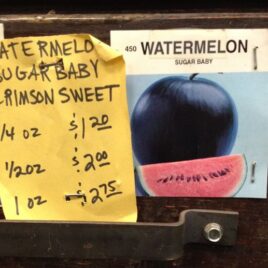 ATERMELO
SUGAR BABY
CRIMSON SWEET
1/4 oz $1.20
1/2 oz $2.00
1 oz $2.75
450 WATERMELON
SUGAR BABY